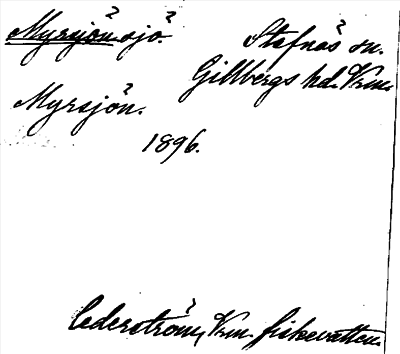 Myrsjön. sjö.
Stafnäs sn.
Gillbergs hd. Vrm.
Myrsjön.
1896.
Cederström, Vrm. fiskevatten.